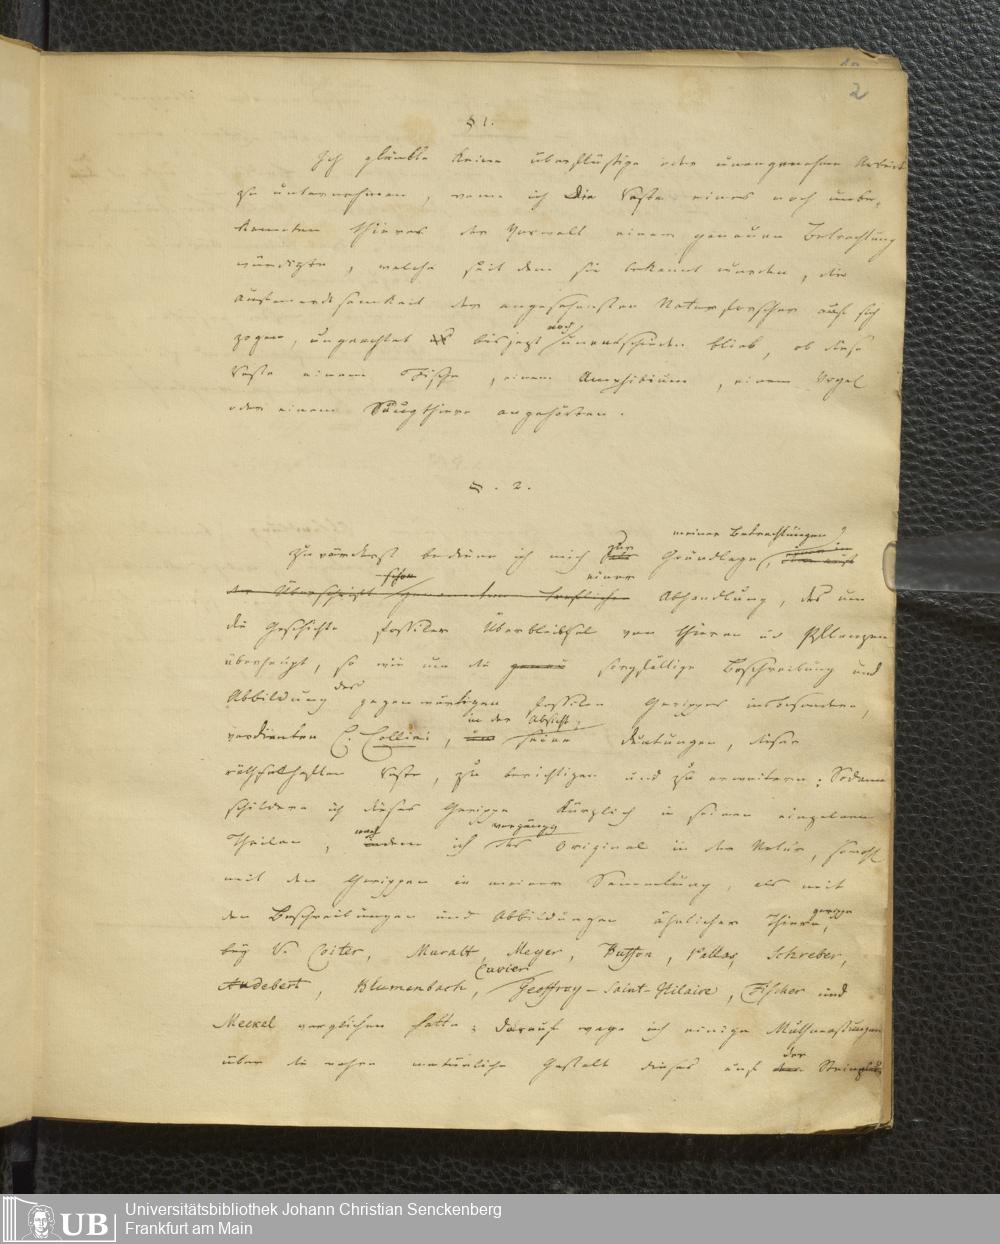 2
§ 1.
Ich glaubte keine überflüssige oder unangenehme Arbeit
zu unternehmen, wenn ich die Reste eines noch unbe-
kannten Thieres der Vorwelt einer genauen Betrachtung
würdigte, welche seit dem sie bekannt wurden, die
Aufmerksamkeit der angesehensten Naturforscher auf sich
zogen, ungeachtet es bis jezt noch unentschieden blieb, ob diese
Reste einem Fische, einem Amphibium, einem Vogel
oder einem Säugthiere angehörten.
§. 2.
Zuvörderst bediene ich mich zur Grundlage meiner Betrachtungen,
der Überschrift schon genannten trefflichen einer Abhandlung, des um
die Geschichte fossiler Überbleibsel von Thieren und Pflanzen
überhaupt, so wie um die genau sorgfältige Beschreibung und
Abbildung des gegenwärtigen fossilen Gerippes insbesondere,
verdienten C. Collini, in der Absicht, seine Deutungen, dieser
räthselhaften Reste, zu berichtigen und zu erweitern; Sodann
schildere ich dieses Gerippe kürzlich in seinen einzelnen
Theilen, nachdem ich vorgängig das Original in der Natur, sowohl
mit den Gerippen in meiner Sammlung, als mit
den Beschreibungen und Abbildungen ähnlicher Thiergerippe,
bey V. Coiter, Muralt, Meyer, Buffon, Pallas, Schreber,
Audebert, Blumenbach, Cuvier, Geoffroy-Saint-Hilaire, Fischer und
Meckel verglichen hatte; darauf wage ich einige Muthmassungen
über die wahre natürliche Gestalt dieses auf der Stein
UB
Universitätsbibliothek Johann Christian Senckenberg
Frankfurt am Main